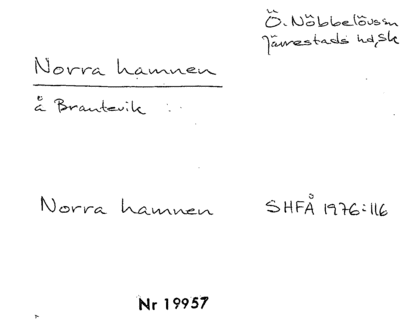 Ö. Nöbbelövs sn
Järrestads hd, Sk
Norra hamnen
å Brantevik
Norra hamnen
SHFÅ 1976:116
Nr 19957